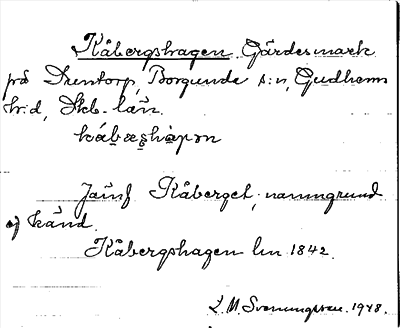 Kåbergshagen Gärdesmark
på Drentorp, Borgunda s:n, Gudhems
hr:d, Skb. län.
Jämf Kåberget, namngrund
ej känd.
Kåbergshagen lm 1842.
L. M. Svenungsson. 1948.